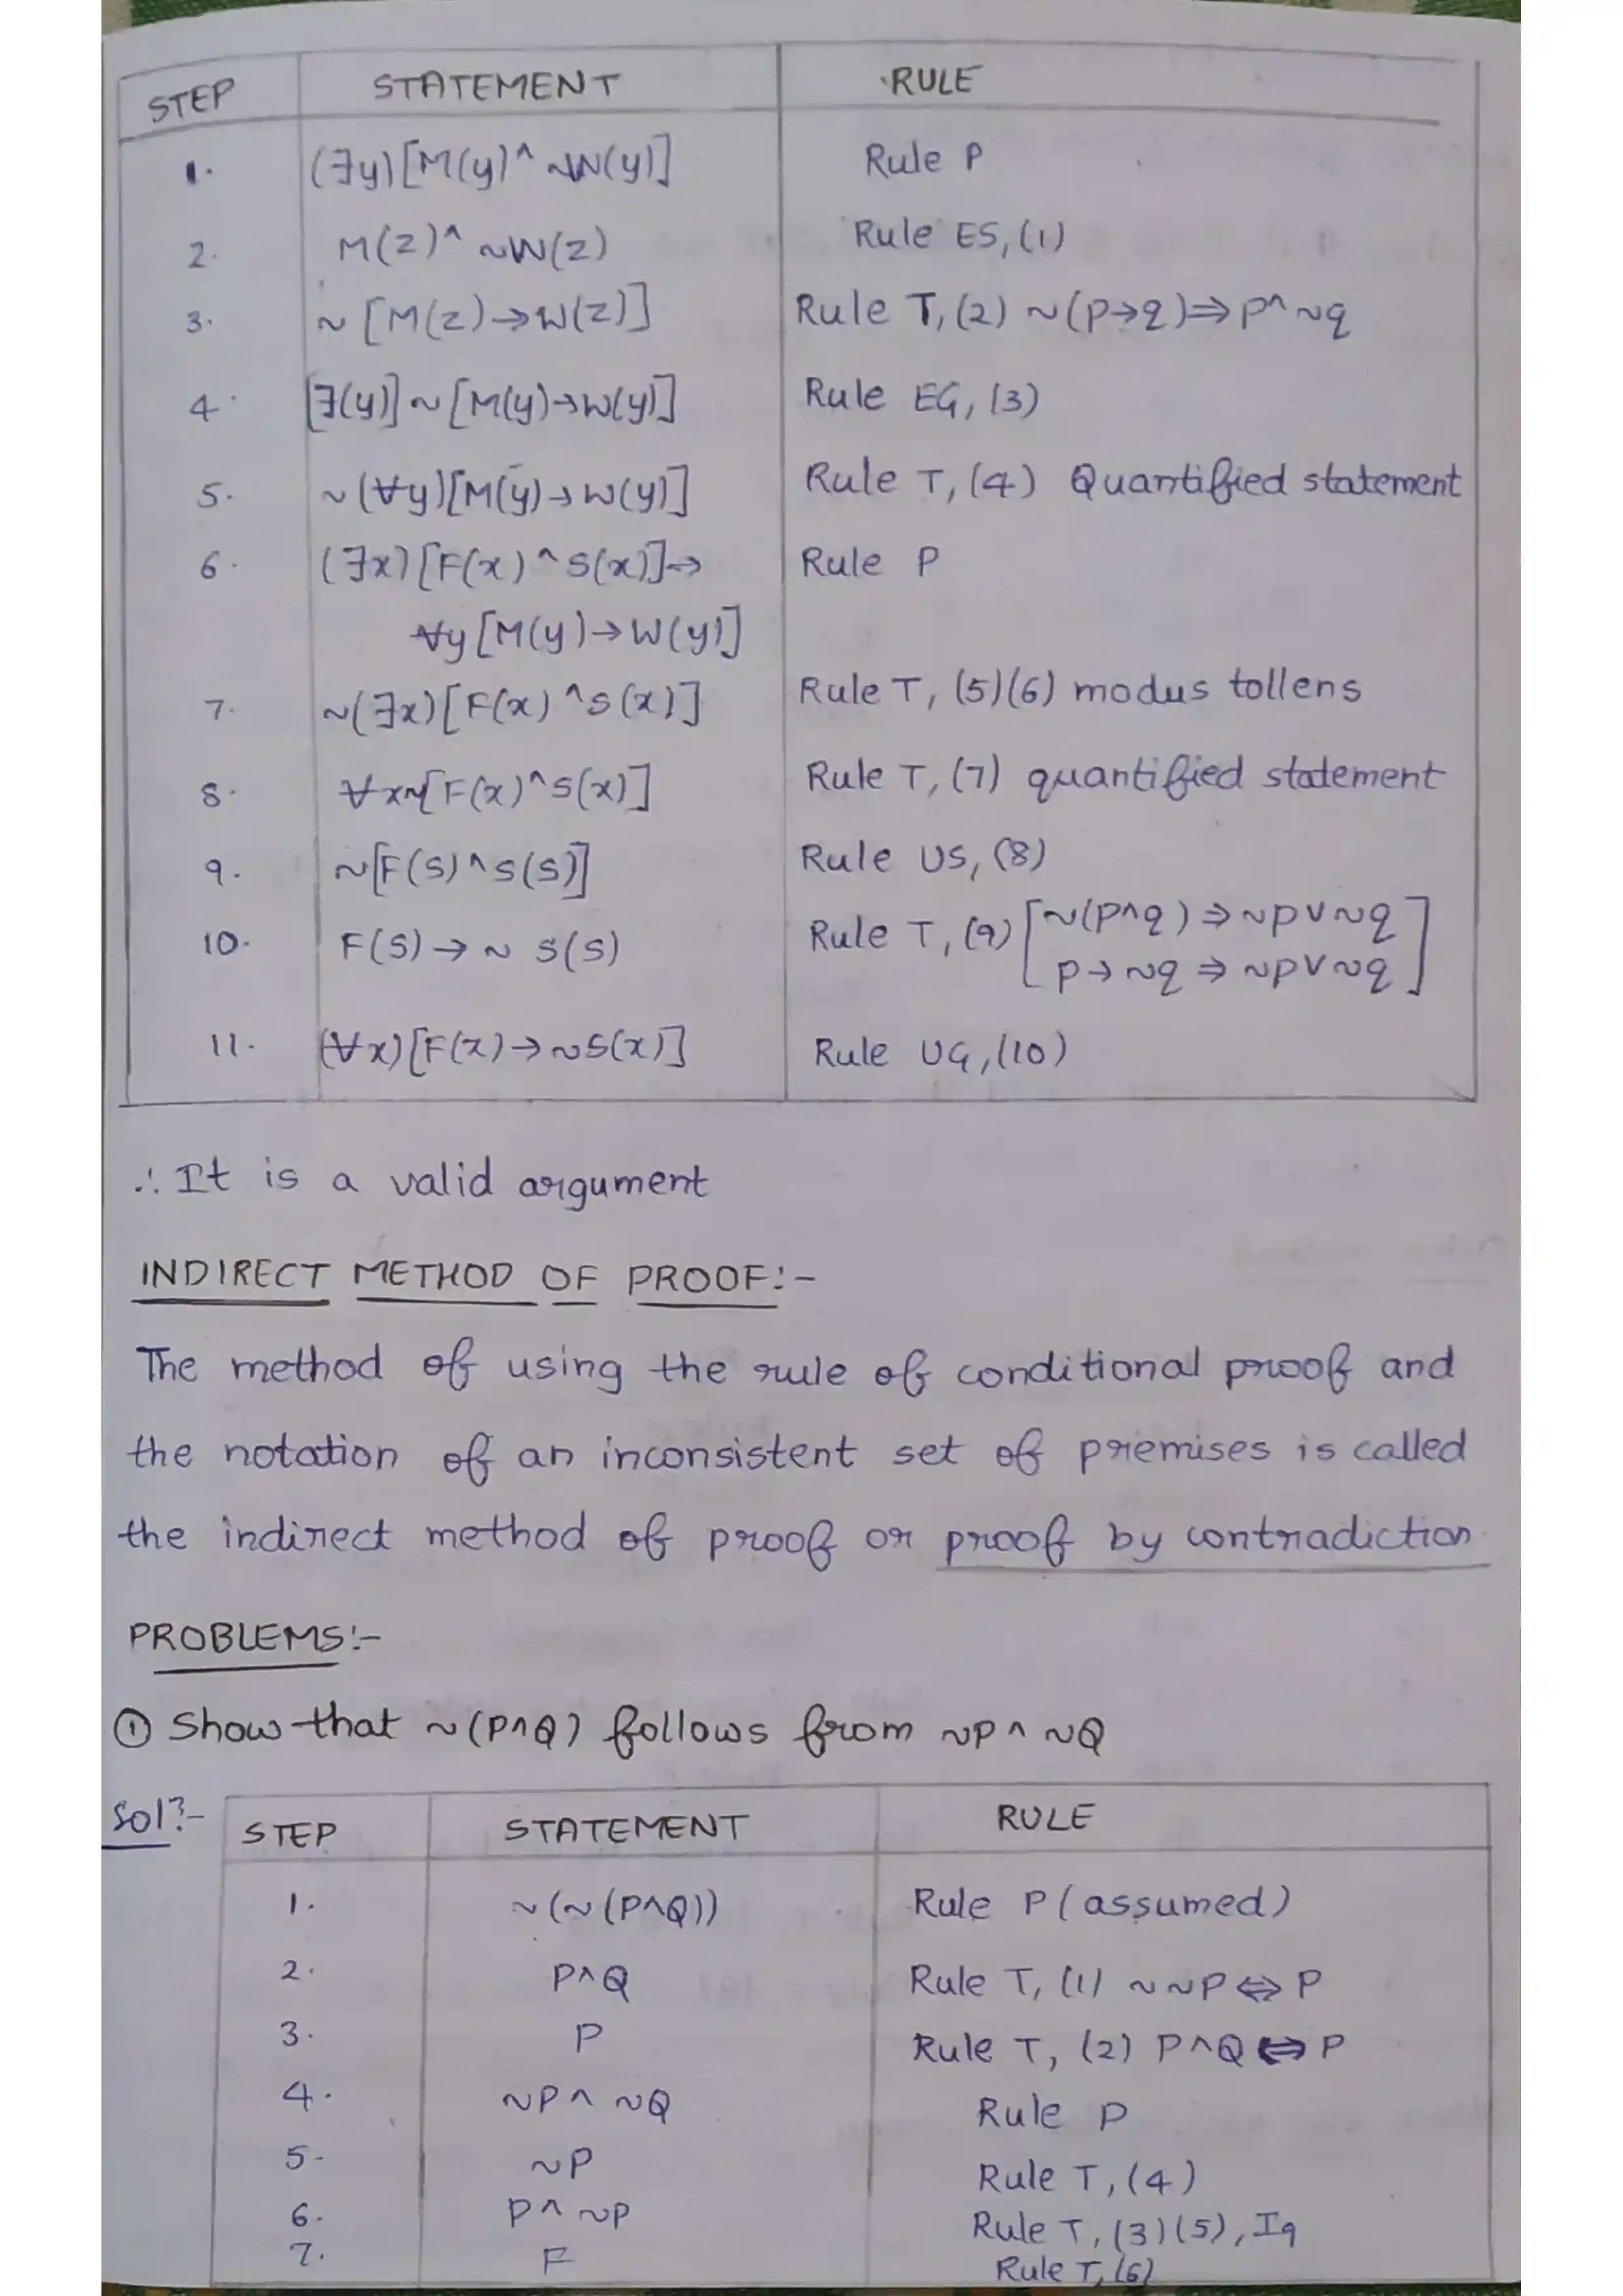 STEP STATEMENT RULE
1. (∃y)[M(y)^ ~W(y)] Rule P
2. M(z)^ ~W(z) Rule ES, (1)
3. ~[M(z)→W(z)] Rule T, (2) ~(p→q)⇒p^~q
4. [∃(y)]~[M(y)→W(y)] Rule EG, (3)
5. ~(∀y)[M(y)→W(y)] Rule T, (4) Quantified statement
6. (∃x)[F(x)^S(x)]→ Rule P
∀y[M(y)→W(y)]
7. ~(∃x)[F(x)^S(x)] Rule T, (5)(6) modus tollens
8. ∀x~[F(x)^S(x)] Rule T, (7) quantified statement
9. ~[F(S)^S(S)] Rule US, (8)
10. F(S)→~ S(S) Rule T, (9) [~(p^q)⇒~p∨~q
p→~q⇒~p∨~q]
11. (∀x)[F(x)→~S(x)] Rule UG,(10)
∴ It is a valid argument
INDIRECT METHOD OF PROOF:-
The method of using the rule of conditional proof and
the notation of an inconsistent set of premises is called
the indirect method of proof or proof by contradiction
PROBLEMS:-
① Show that ~(P^Q) follows from ~P ^ ~Q
Sol?- STEP STATEMENT RULE
1. ~(~(P^Q)) Rule P (assumed)
2. P^Q Rule T, (1) ~~P⇔P
3. P Rule T, (2) P^Q⇔P
4. ~P ^ ~Q Rule P
5- ~P Rule T, (4)
6. P^~P Rule T, (3)(5), I9
7. F Rule T, (6)